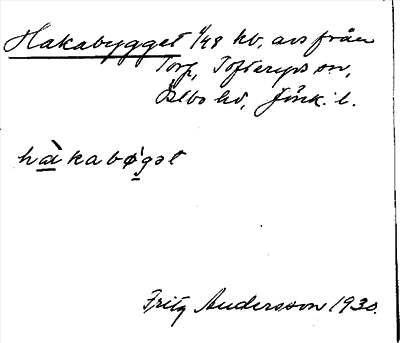 Hakabygget 1/48 hb, avs från
Torp, Tofteryds sn,
Östbo hd, Jönk. l.
hàkabø̀gət
Fritz Andersson 1930.